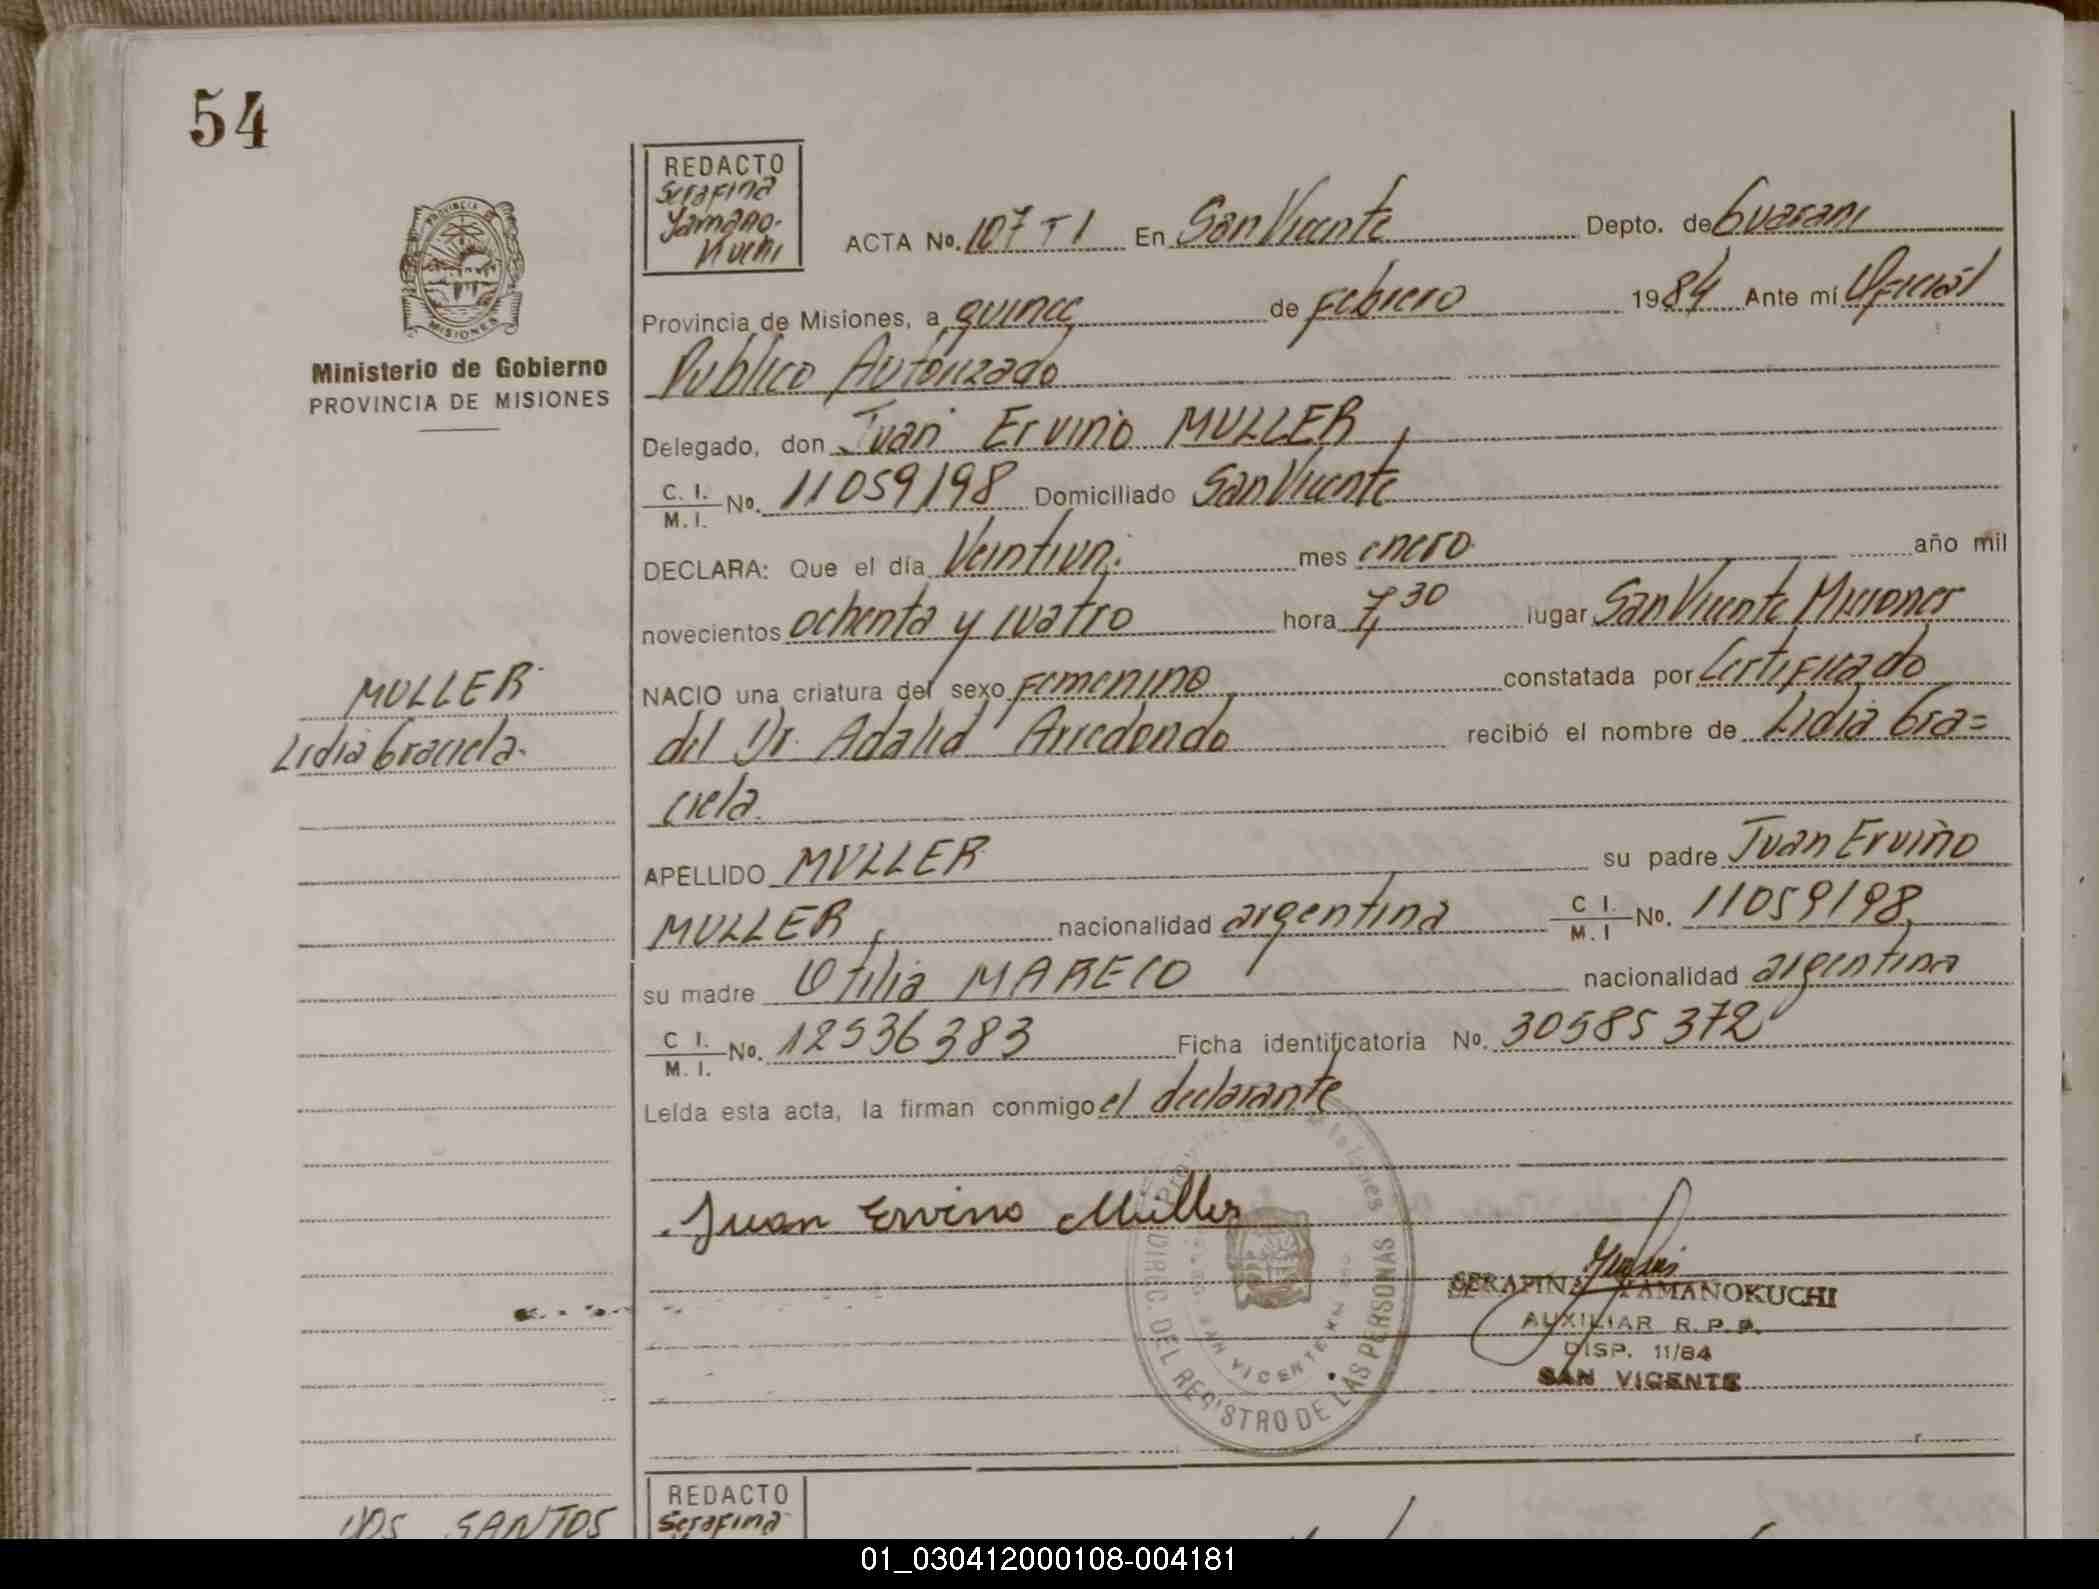 54
REDACTO
Serafina
Yamano-
Kuchi
ACTA No. 107 T I En San Vicente Depto. de Guarani
PROVINCIA DE
MISIONES
Provincia de Misiones, a quince de Febrero 1984 Ante mí Oficial
Ministerio de Gobierno
PROVINCIA DE MISIONES
Publico Autorizado
Delegado, don Juan Ervino MULLER,
C. I.
M. I. No. 11059198 Domiciliado San Vicente
DECLARA: Que el día Veintiun. mes enero año mil
novecientos ochenta y cuatro hora 7,30 lugar San Vicente Misiones
MULLER
Lidia Graciela.
NACIO una criatura del sexo Femenino constatada por Certificado
del Dr. Adalid Arredondo recibió el nombre de Lidia Gra=
ciela.
APELLIDO MULLER su padre Juan Ervino
MULLER, nacionalidad argentina C I.
M. I No. 11059198,
su madre Otilia MARECO nacionalidad argentina
C I.
M. I. No. 12536383 Ficha identificatoria No. 30585372
Leída esta acta, la firman conmigo el declarante
Juan Ervino Müller
DIREC. DEL REGISTRO DE LAS PERSONAS
SAN VICENTE
SERAFINA YAMANOKUCHI
AUXILIAR R. P. P.
DISP. 11/84
SAN VICENTE
DOS SANTOS
REDACTO
Serafina
01_030412000108-004181